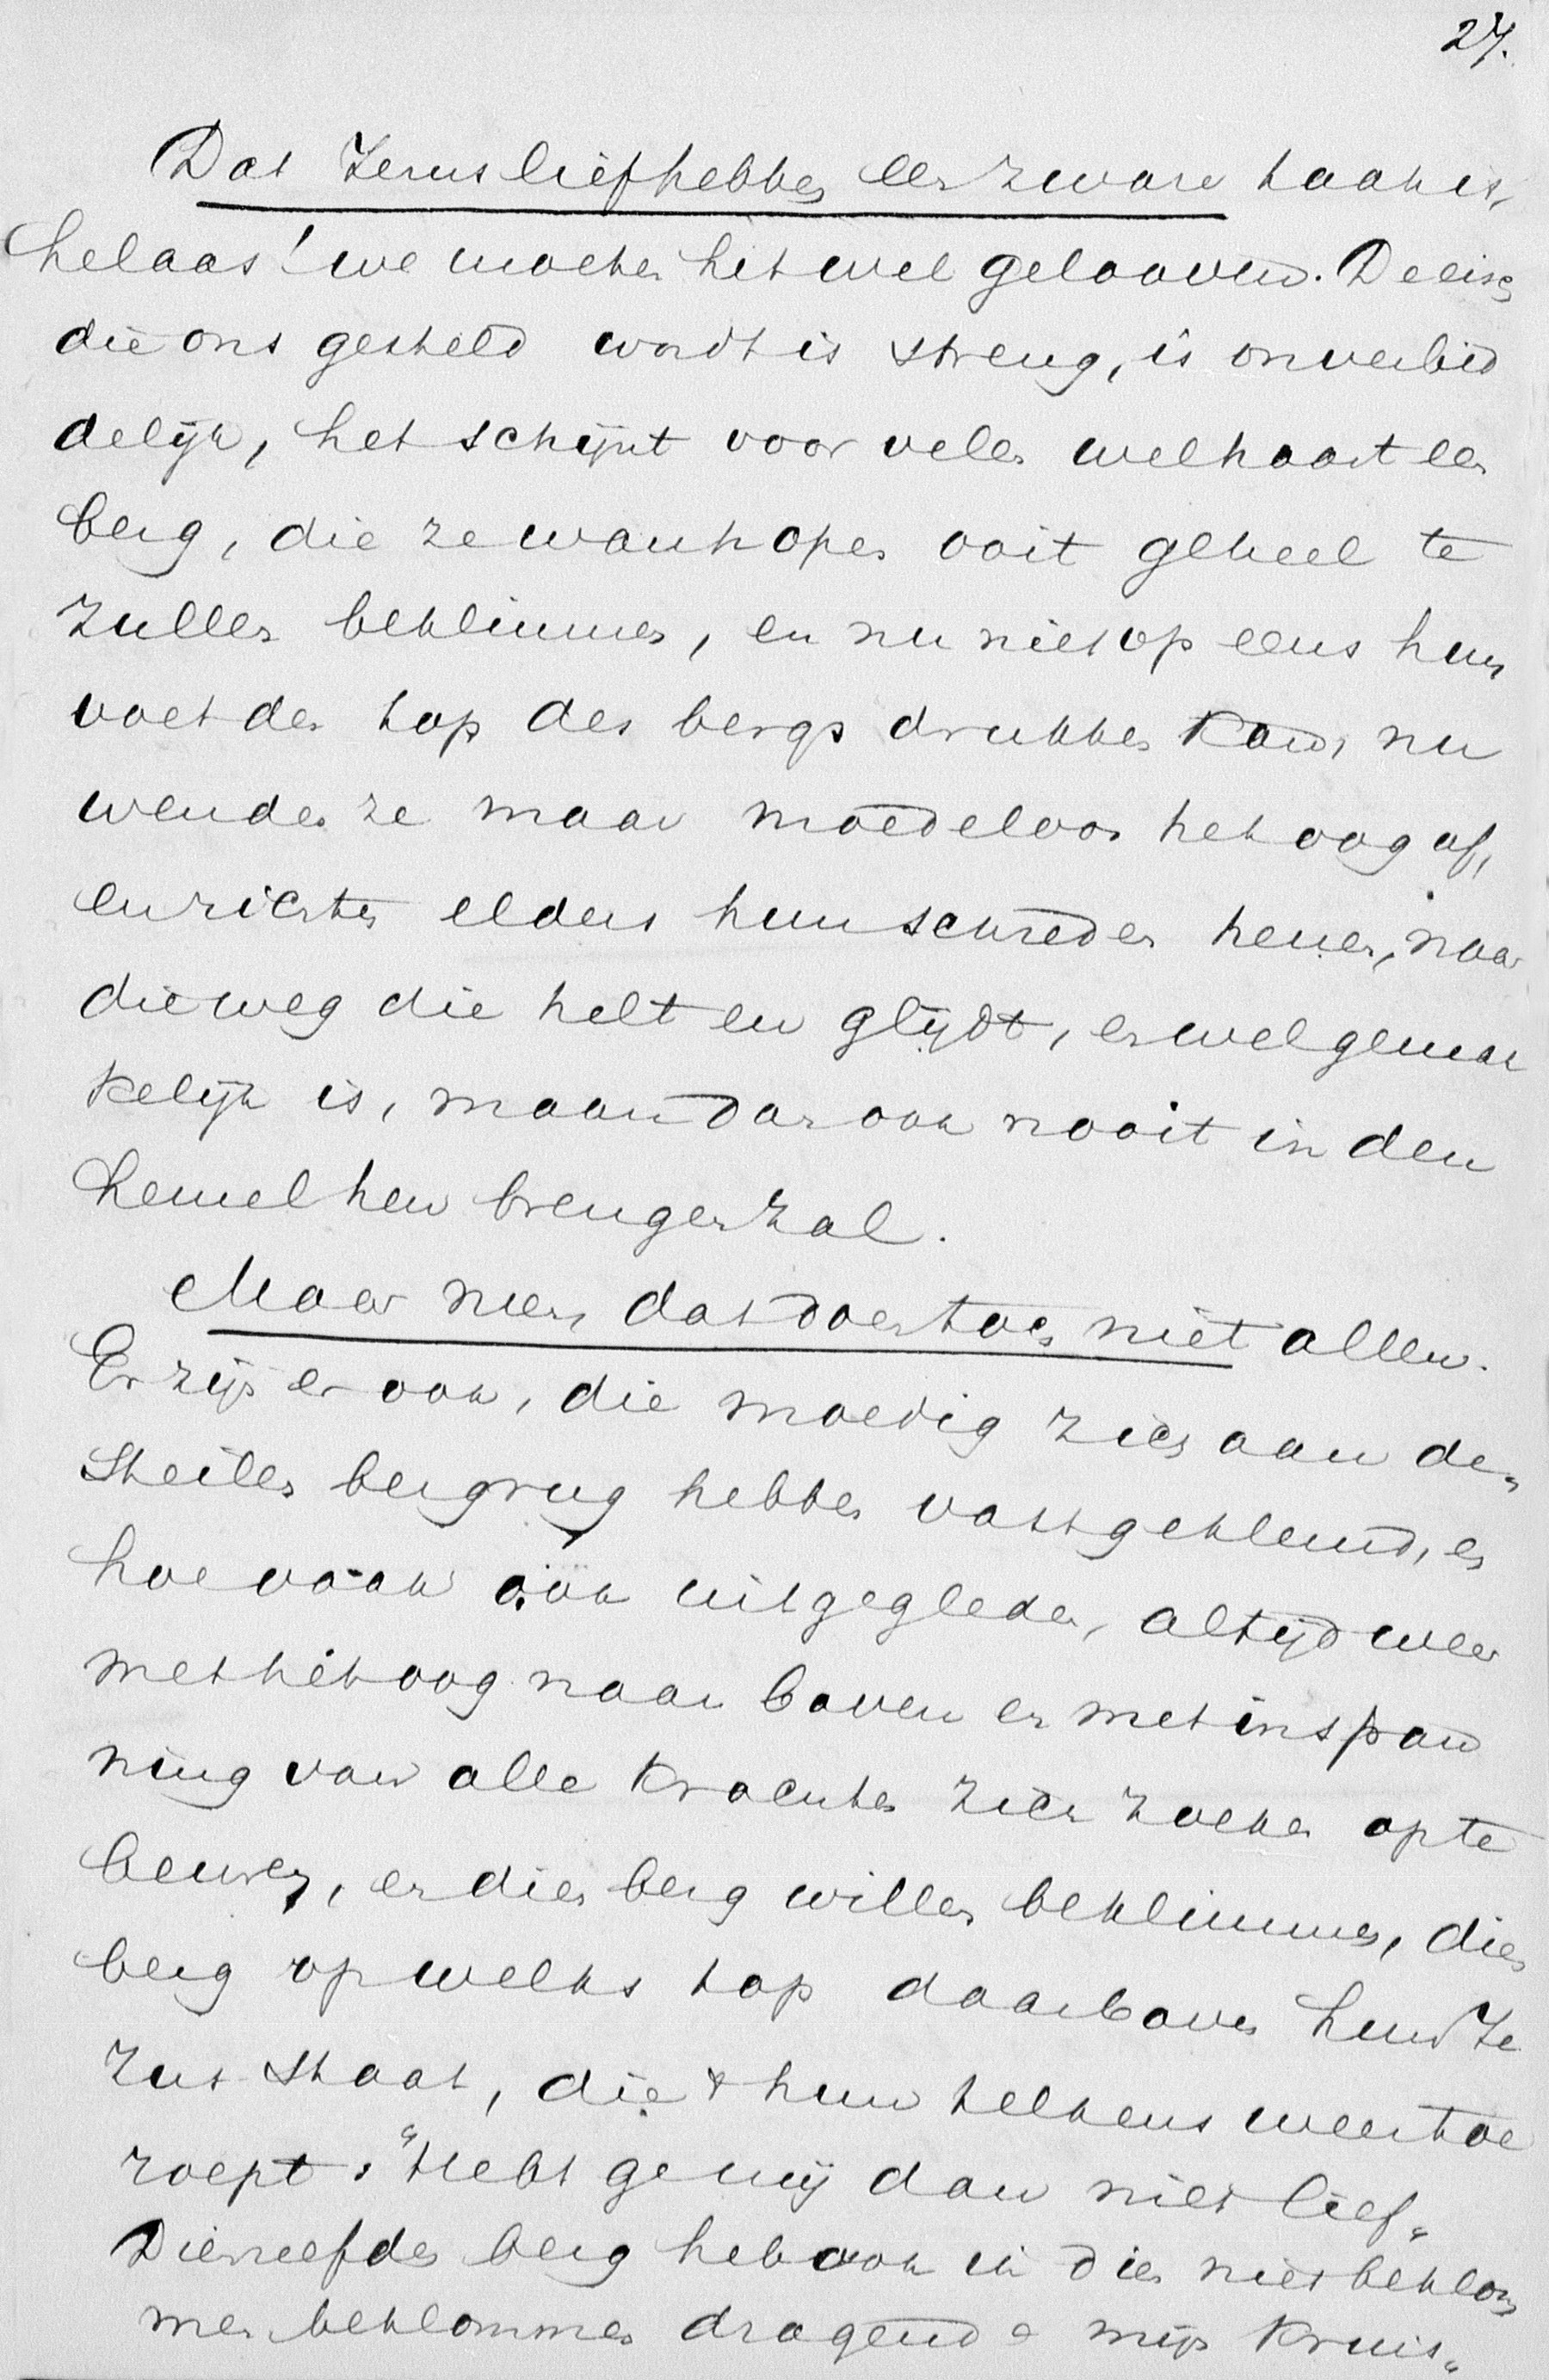 27.
Dat Jezus liefhebben een zware taak is,
helaas! we moeten het wel gelooven. De eisch
die ons gesteld wordt is streng, is onverbid
delijk, het schijnt voor velen welhaast een
berg, die ze wanhopen ooit geheel te
zullen beklimmen, en nu niet op eens hun
voet den top des bergs drukken kan, nu
wenden ze maar moedeloos het oog af,
en richten elders hun schreden henen, naar
die weg die helt en glijdt, en wel gemak
kelijk is, maar dan ook nooit in den
hemel hen brengen zal.
Maar neen, dat doen toch niet allen.
Er zijn er ook, die moedig zich aan den
steilen bergrug hebben vastgeklemd, en
hoe vaak ook uitgegleden, altijd weer
met het oog naar boven en met inspan
ning van alle krachten zich zoeken op te
beuren, en dien berg willen beklimmen, dien
berg op welks top daarboven hun Je
zus staat, die hun telkens weer toe
roept: "Hebt ge mij dan niet lief"
Dienzelfden berg heb ook ik dien niet beklom
men beklommen dragende mijn kruis"